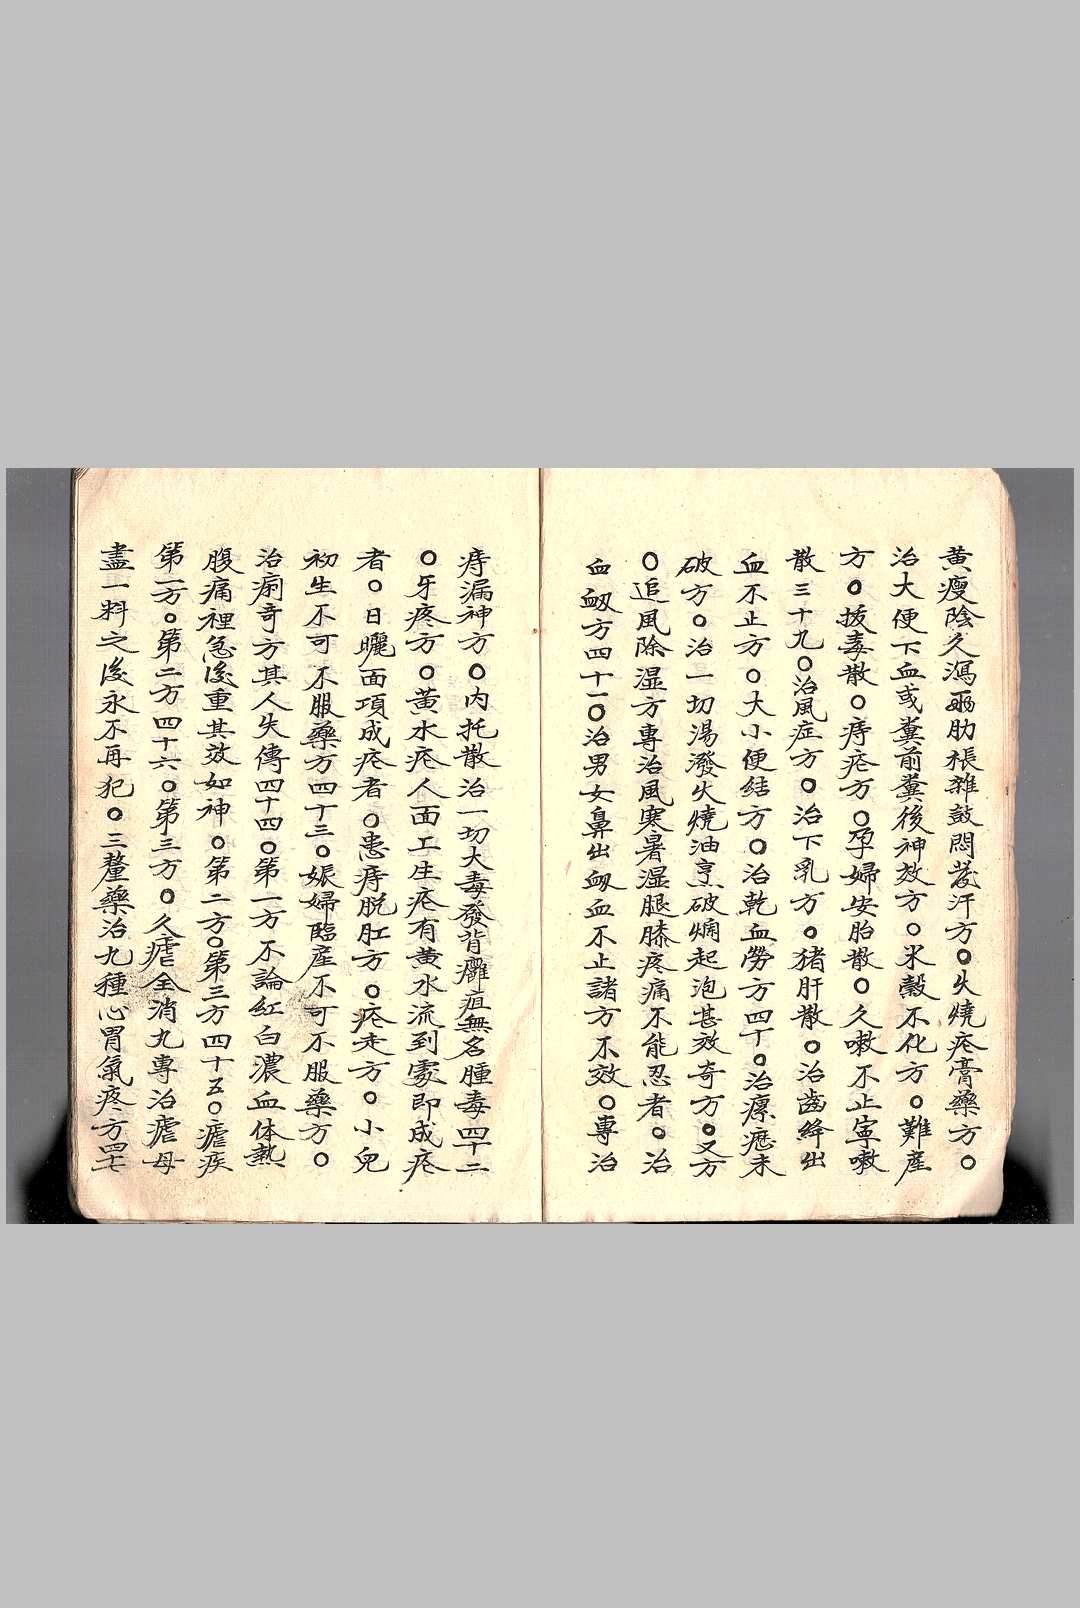 黄瘦陰久瀉兩肋振雜鼓悶發汗方○火燒疮膏藥方○
治大便下血或糞前糞後神效方○米穀不化方○難產
方○拔毒散○痔疮方○孕婦安胎散○久嗽不止寧嗽
散三十九○治風症方○治下乳方○猪肝散○治齒縫出
血不止方○大小便結方○治乾血勞方四十○治瘰癧未
破方○治一切湯潑火燒油烹破爛起泡甚效奇方○又方
○追風除湿方專治風寒暑湿腿膝疼痛不能忍者○治
血衂方四十一○治男女鼻出衂血不止諸方不效○專治
痔漏神方○内托散治一切大毒發背癰疽無名腫毒四十二
○牙疼方○黄水疮人面上生疮有黄水流到處即成疮
者○日曬面項成疮者○患痔脱肛方○疮走方○小兒
初生不可不服藥方四十三○娠婦臨產不可不服藥方○
治痢奇方其人失傳四十四○第一方不論紅白濃血体熱
腹痛裡急後重其效如神○第二方○第三方四十五○瘧疾
第一方○第二方四十六○第三方○久瘧全消丸專治瘧母
盡一料之後永不再犯○三釐藥治九種心胃氣疼方四七